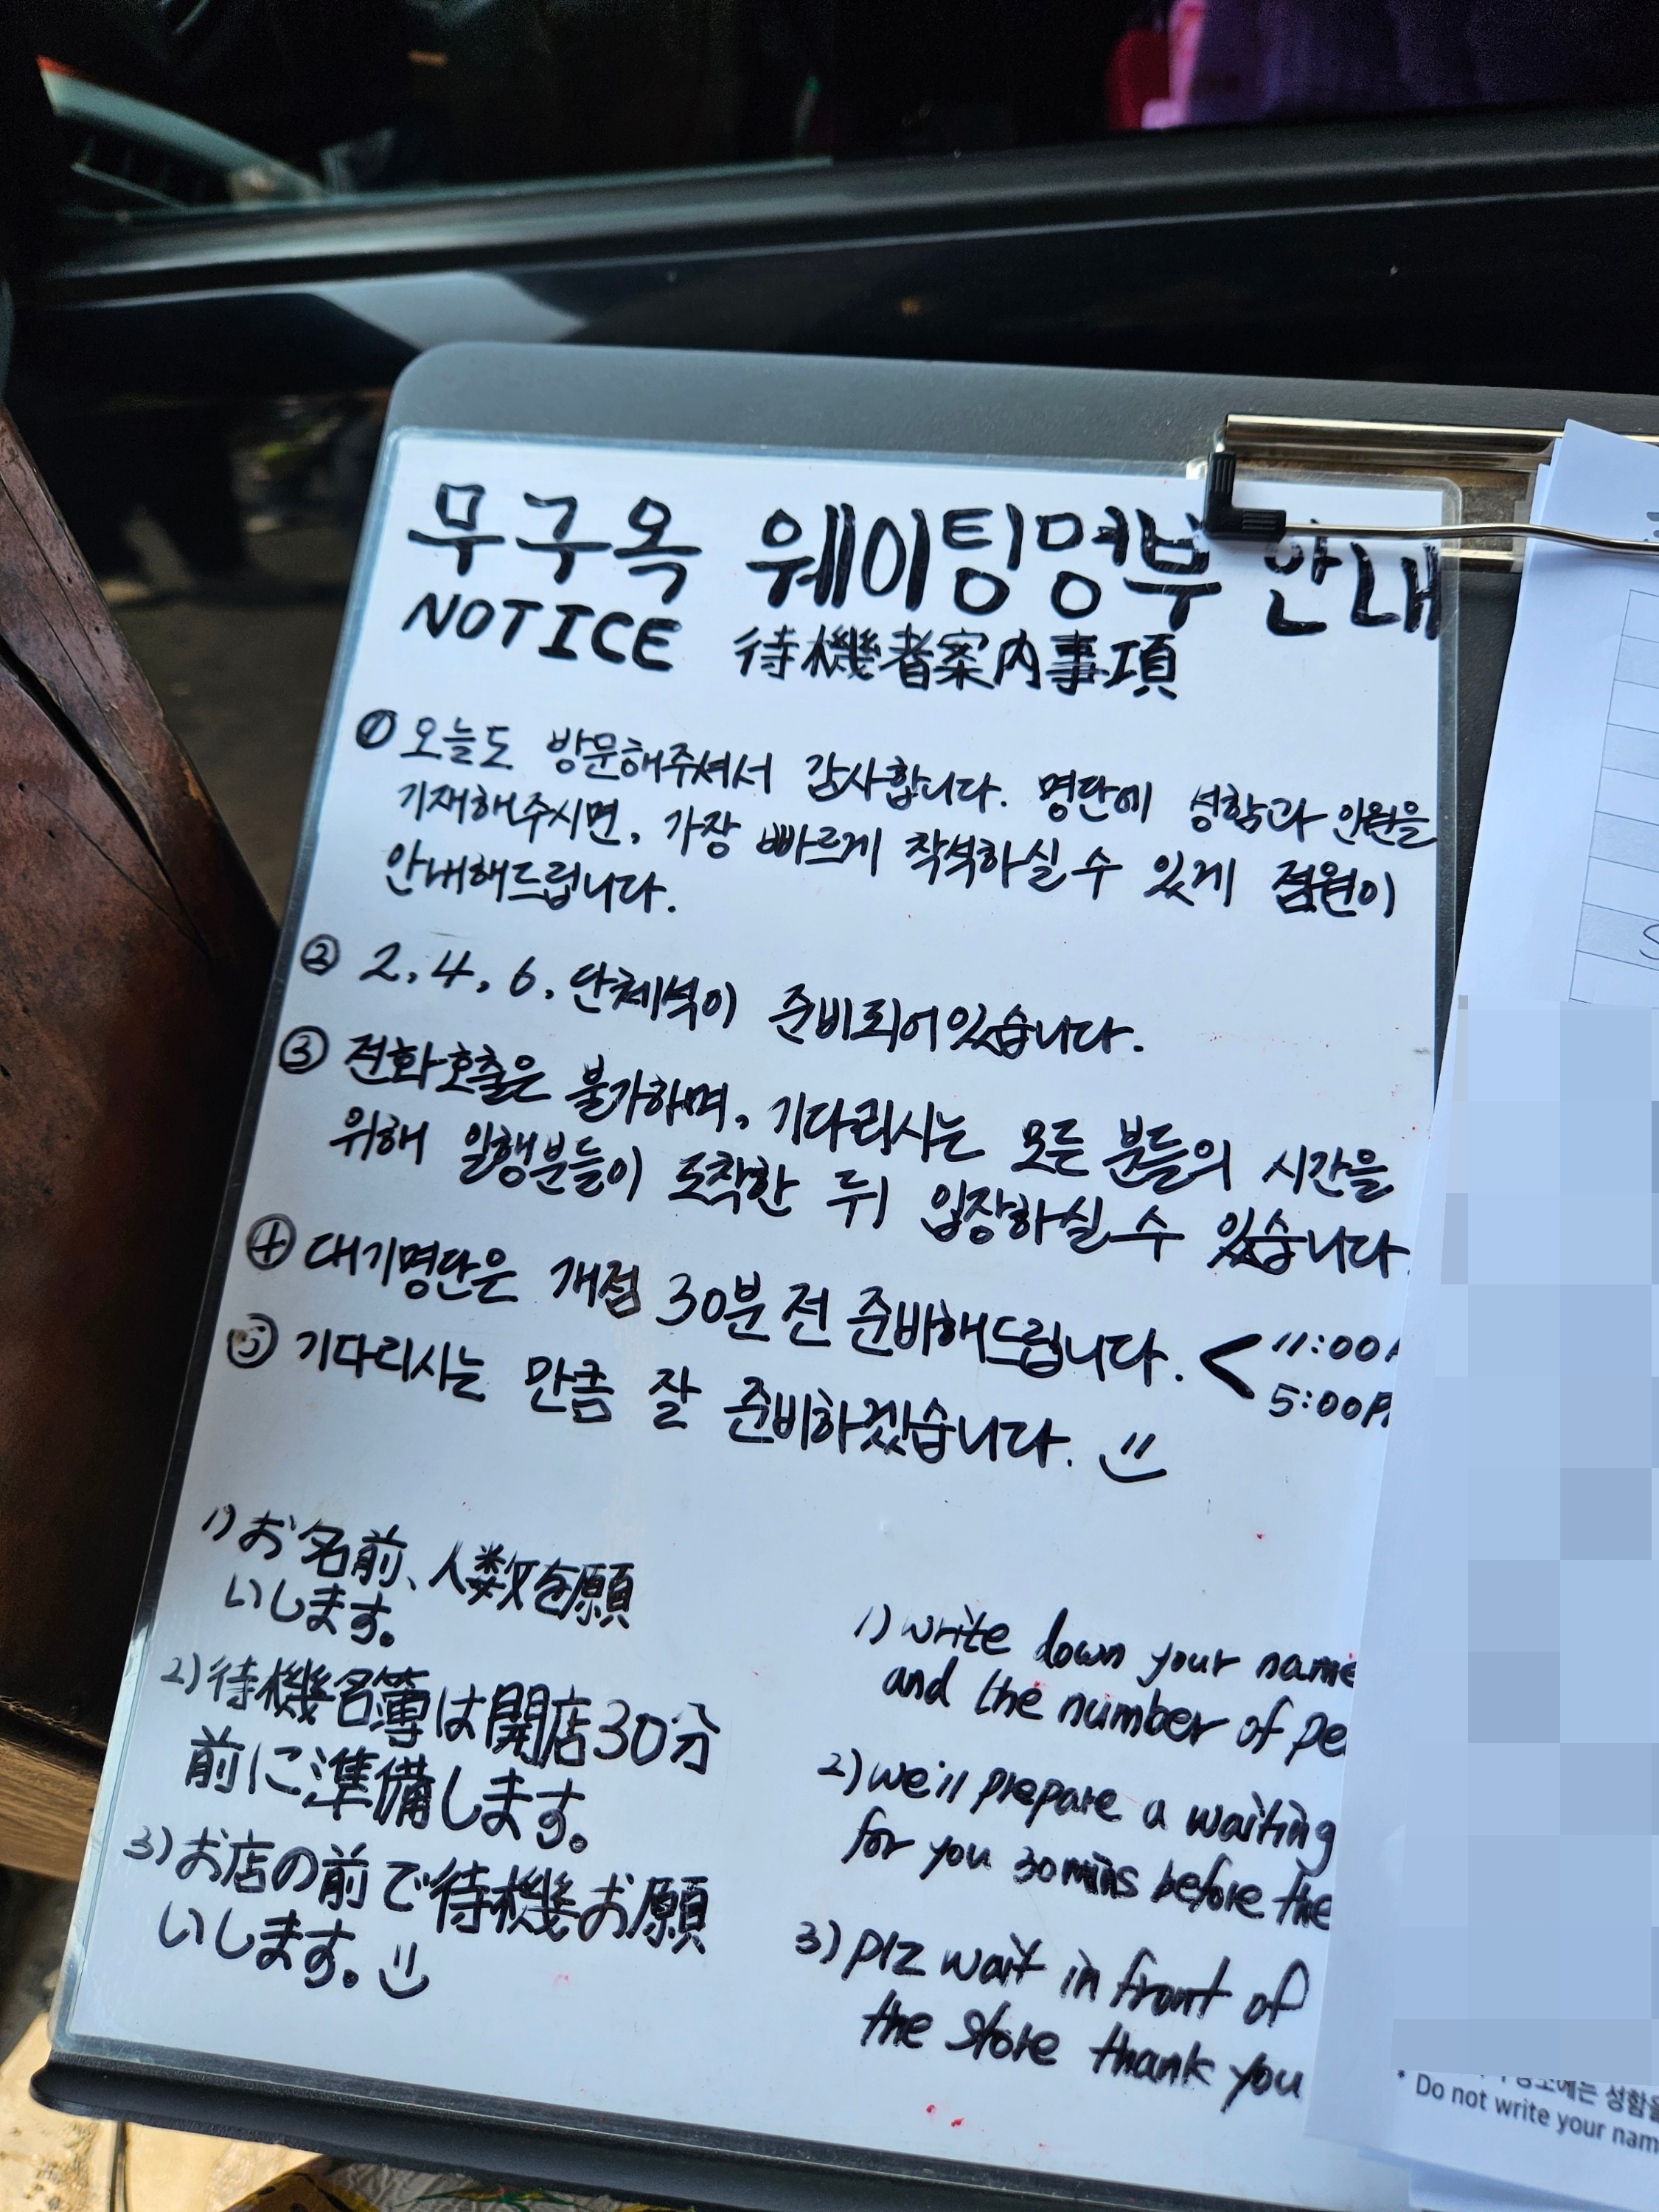 무구옥 웨이팅명부 안내
NOTICE 待機者案内事項
① 오늘도 방문해주셔서 감사합니다. 명단에 성함과 인원을
기재해주시면, 가장 빠르게 착석하실 수 있게 점원이
안내해드립니다.
② 2, 4, 6, 단체석이 준비되어있습니다.
③ 전화호출은 불가하며, 기다리시는 모든 분들의 시간을
위해 일행분들이 도착한 뒤 입장하실 수 있습니다
④ 대기명단은 개점 30분 전 준비해드립니다. < 11:00
5:00P
⑤ 기다리시는 만큼 잘 준비하겠습니다.
1) お名前、人数を願
いします。
2) 待機名簿は開店30分
前に準備します。
3) お店の前で待機お願
いします。
1) write down your name
and the number of pe
2) we'll prepare a waiting
for you 30mins before the
3) plz wait in front of
the store thank you
성함을
* Do not write your nam